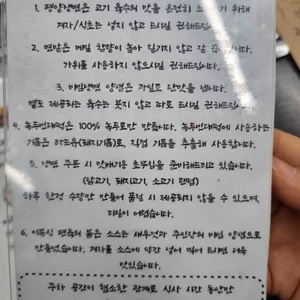 1. 평양냉면은 고기 육수의 맛을 온전히 느끼기 위해
겨자/식초는 넣지 않고 드시길 권해드립니다.
2. 면발은 메밀 함량이 높아 질기지 않고 잘
가위를 사용하지 않으시길 권해드립니다.
3. 비빔냉면 양념은 과일로 단맛을 냅니다.
별도 제공되는 육수는 붓지 않고 따로 드시길 권해드립니다.
4. 녹두빈대떡은 100% 녹두로만 만듭니다. 녹두빈대떡에 사용하는
기름은 라드유(돼지기름)로, 직접 기름을 추출해 사용합니다.
5. 냉면 주문 시 맛배기용 초무침을 준비해드리고 있습니다.
(닭고기, 돼지고기, 소고기 랜덤)
하루 한정 수량만 만들어 품절 시 제공되지 않을 수 있으며,
리필이 어렵습니다.
6. 이북식 편육의 붉은 소스는 새우젓과 주인장의 비법 양념으로
만들었습니다. 겨자를 소스에 약간 넣어 찍어 드시면 더욱
맛있습니다.
주차 공간이 협소한 관계로 식사 시간 동안만